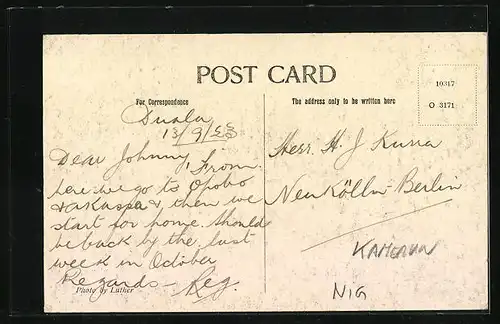 POST CARD
10317
O 3171
For Correspondence
The address only to be written here
Duala
13/9/
Dear Johnny, From
here we go to Opobo
& Akassa & then we
start for home. Should
be back by the last
week in October
Regards - Reg.
Photo by Luther
Herr. H. J
Neukölln - Berlin
KAMERUN
NIG